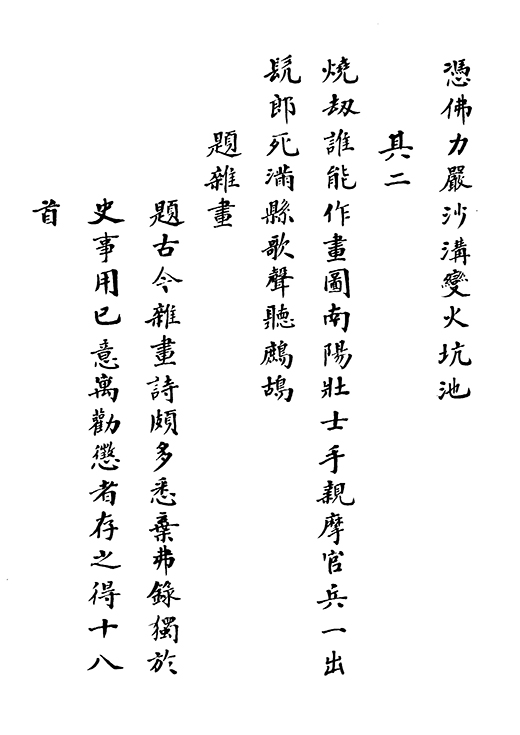 憑佛力嚴沙溝變火坑池
其二
燒劫誰能作畫圖南陽壯士手親摩官兵一出
髡郎死滿縣歌聲聽鷓鴣
題雜畫
題古今雜畫詩頗多悉棄弗錄獨於
史事用已意寓勸懲者存之得十八
首